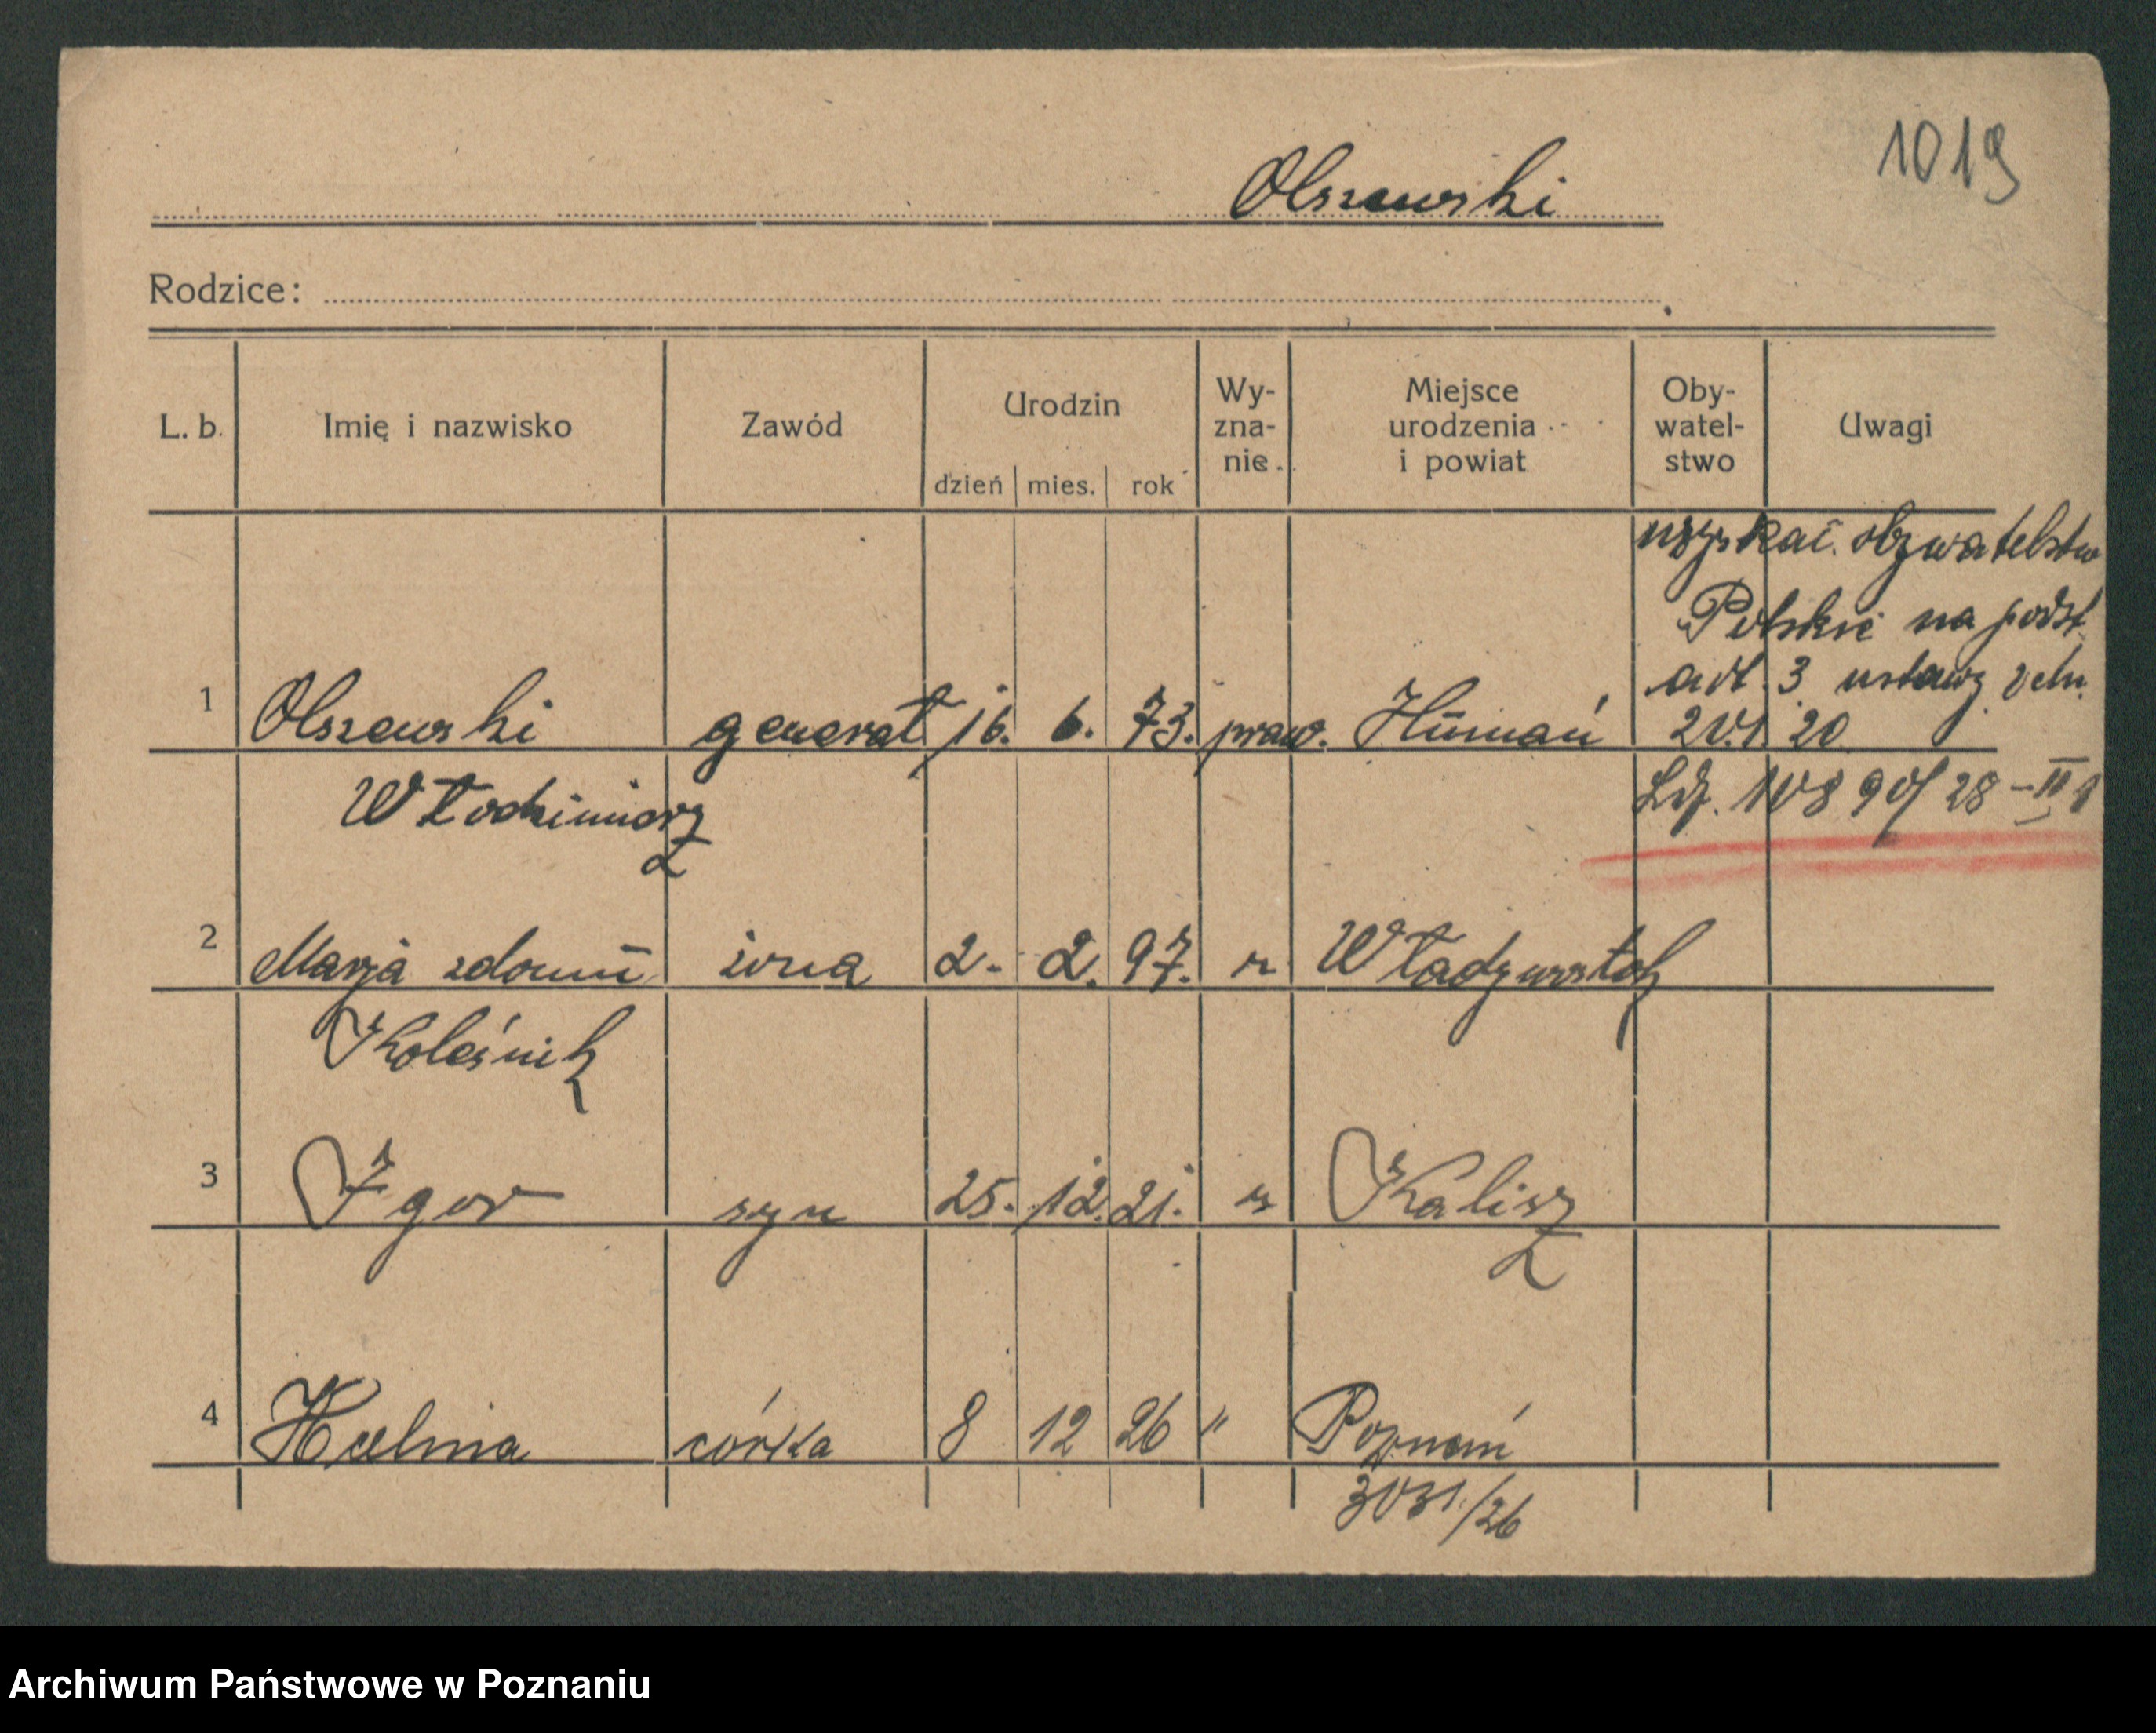 1019
Olszewski
Rodzice:
L. b. Imię i nazwisko Zawód Urodzin Wy-zna-nie. Miejsce urodzenia i powiat Oby-watel-stwo Uwagi
dzień mies. rok
uzyskał obywatelstwo
Polskie na podst.
art. 3 ustawy z dn.
1 Olszewski generał 16. 6. 73. praw. Humań 20.1.20
Włodzimierz
L.dz. 10890/28-II
2 Marja zdomu żona 2. 2. 97. " Władywostok
Koleśnik
3 Igor syn 25. 12. 21. " Kalisz
4 Halina córka 8 12 26 " Poznań
3031/26
Archiwum Państwowe w Poznaniu